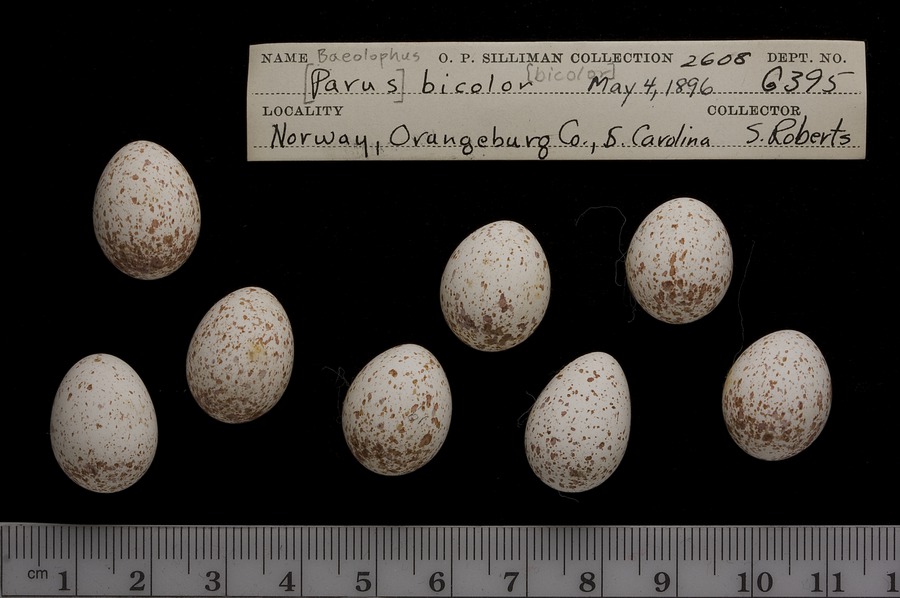 NAME Baeolophus O. P. SILLIMAN COLLECTION 2608 DEPT. NO.
[Parus] bicolor [bicolor] May 4, 1896 6395
LOCALITY COLLECTOR
Norway, Orangeburg Co., S. Carolina S. Roberts
cm 1 2 3 4 5 6 7 8 9 10 11 1